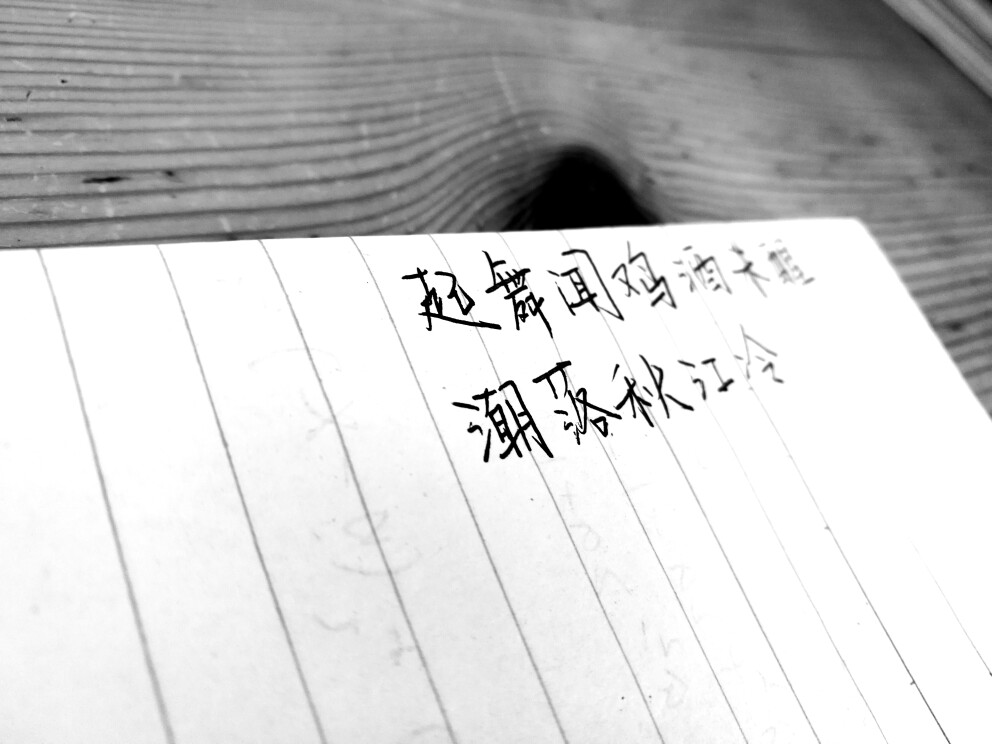 起舞闻鸡酒未醒
潮落秋江冷